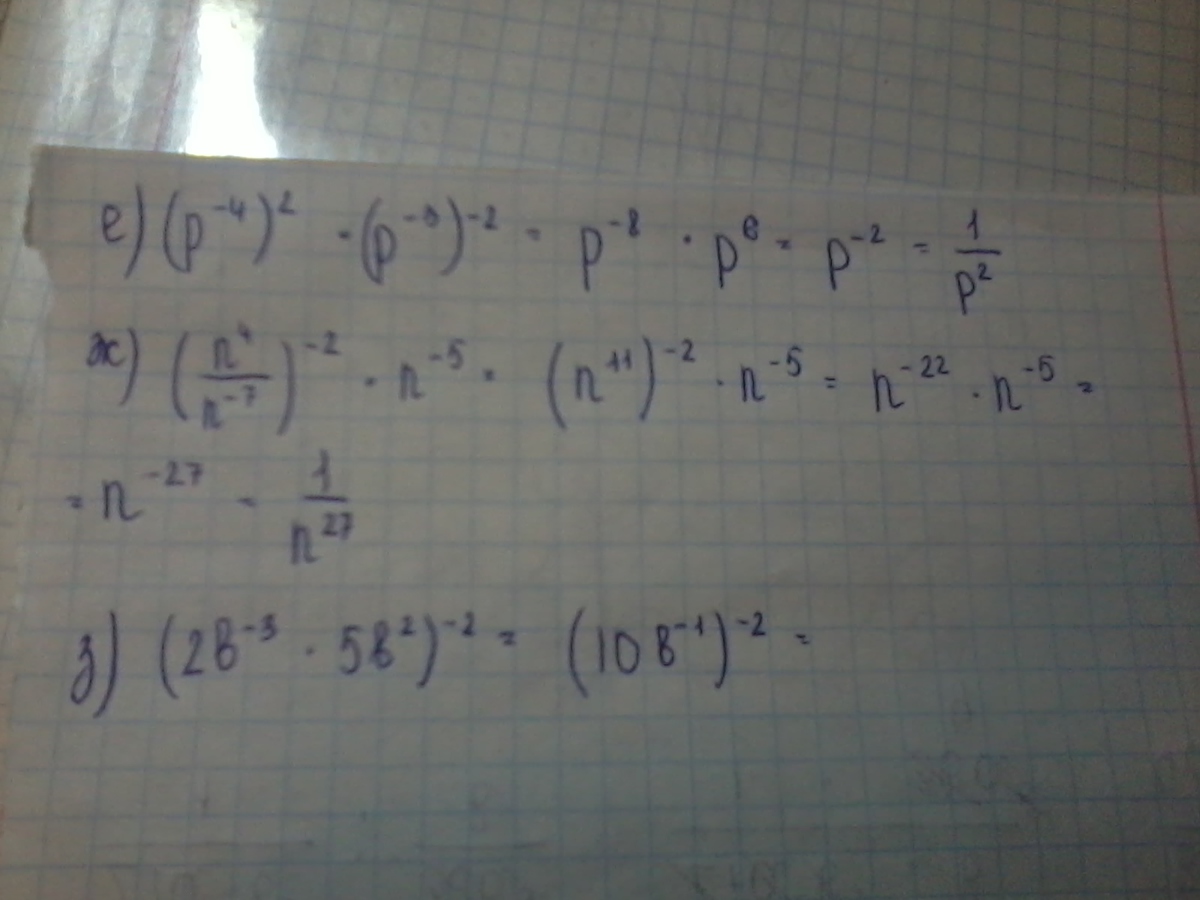 е) (p⁻⁴)² · (p⁻³)⁻² = p⁻⁸ · p⁶ = p⁻² = 1/p²
ж) (n⁴/n⁻⁷)⁻² · n⁻⁵ = (n¹¹)⁻² · n⁻⁵ = n⁻²² · n⁻⁵ =
= n⁻²⁷ = 1/n²⁷
з) (2в⁻³ · 5в²)⁻² = (10в⁻¹)⁻² =